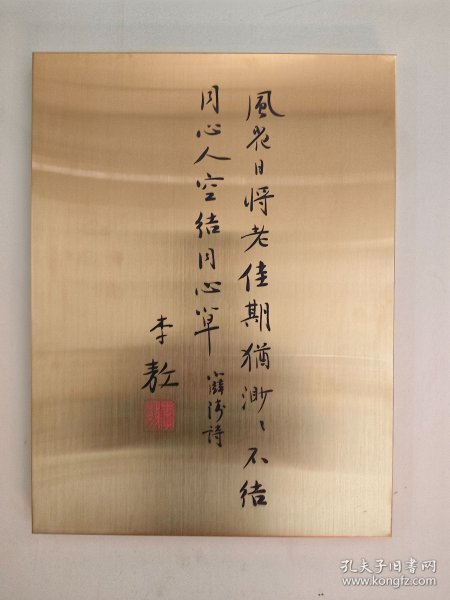 風花日將老佳期猶渺〻不結
同心人空結同心草
薛濤詩
李敖
孔夫子旧书网
www.kongfz.com